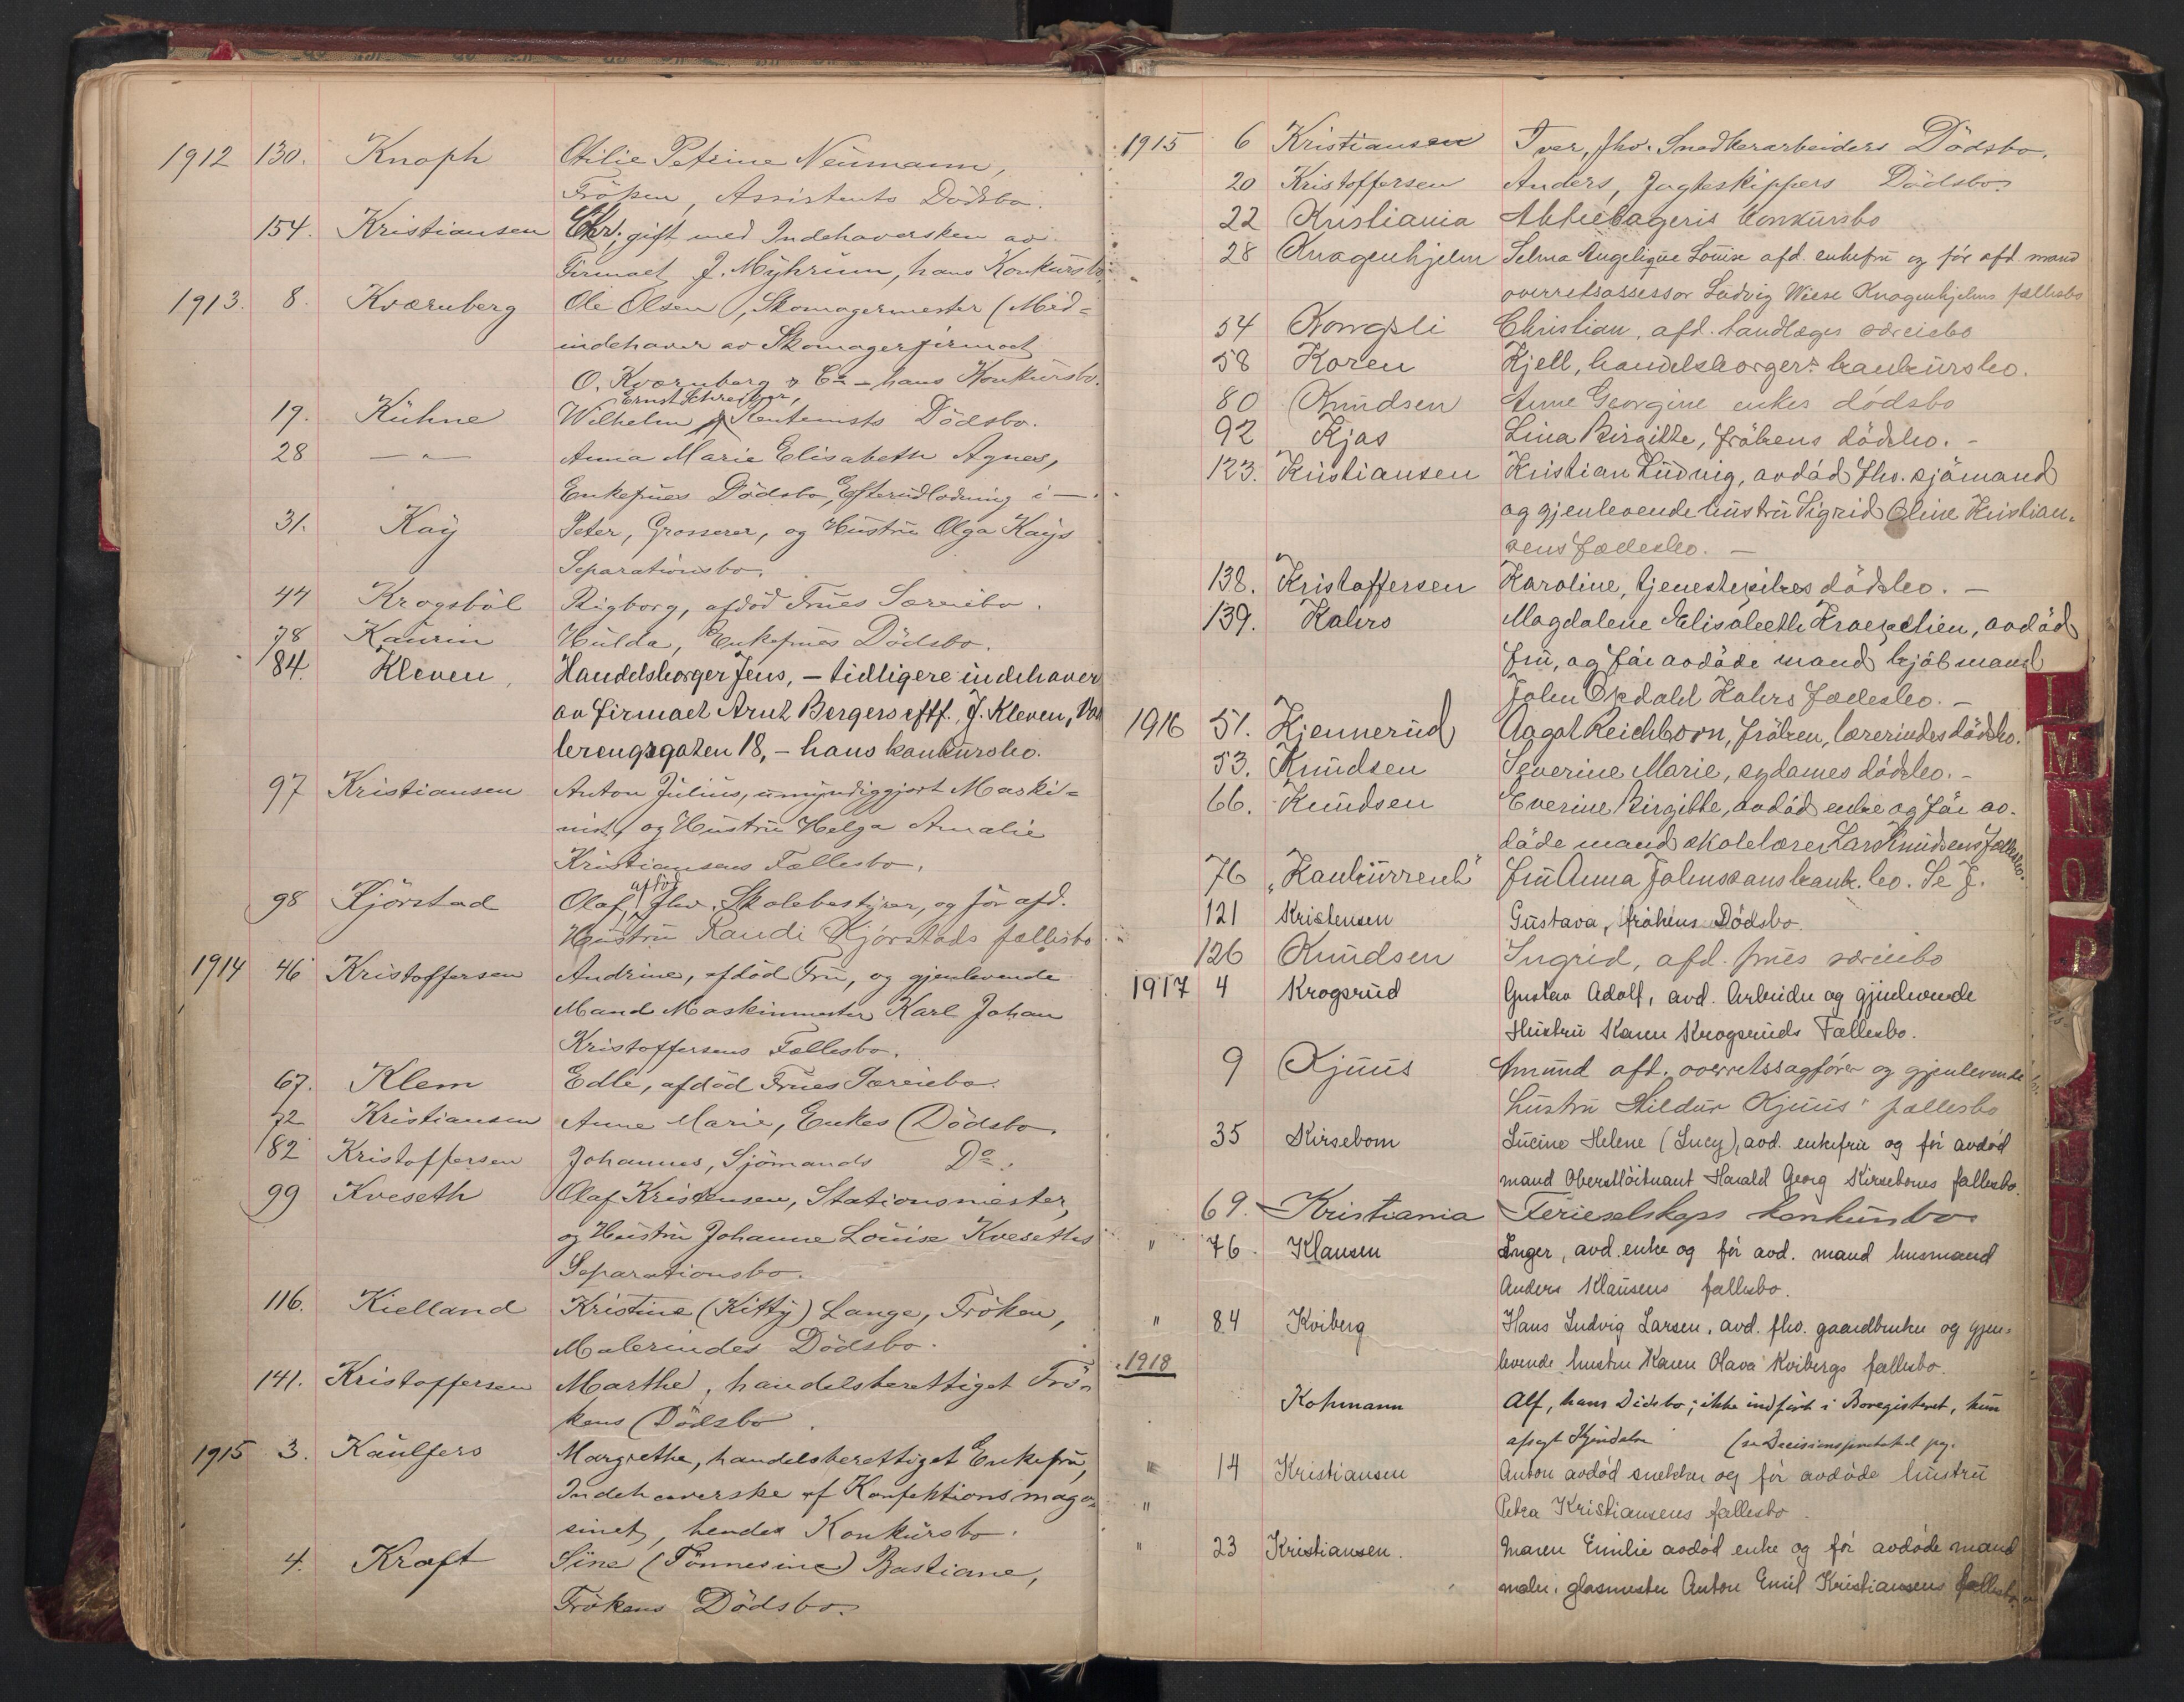 1912 130. Knoph Otilie Petrine Neumann,
Fröken, Assistents Dödsbo.
154. Kristiansen Chr. gift med Indehaversken av
Firmaet J. Myhrum, hans Konkursbo.
1913. 8. Kværnberg Ole Olsen, Skomagermester (Med=
indehaver av Skomagerfirmaet
O. Kværnberg & Co – hans Konkursbo.
Ernst Schreiber,
19. Kühne Wilhelm Rentenists Dödsbo.
28 — " — Anna Marie Elisabeth Agnes,
Enkefrues Dödsbo, Efterudlodning i —
31. Kay Peter, Grosserer, og Hustru Olga Kays
Separationsbo.
44 Krogsböl Rigborg, afdöd Frues Særeiebo.
78 Kaurin Hulda, Enkefrues Dödsbo.
84. Kleven, Handelsborger Jens, – tidligere indehaver
av firmaet Arnt Bergers eftf., J. Kleven,
lerengsgaten 18, – hans konkursbo.
97 Kristiansen Anton Julius, umyndiggjort Maski=
nist, og Hustru Helga Amalie
Kristiansens Fællesbo.
afdöd
98 Kjörstad Olaf, fhv. Skolebestyrer, og för afd.
Hustru Randi Kjörstads fællesbo
1914 46 Kristoffersen Andrine, afdöd Fru, og gjenlevende
Mand Maskinmester Karl Johan
Kristoffersens Fællesbo.
67. Klem Edle, afdöd Frues Særeiebo.
72 Kristiansen Anne Marie, Enkes Dödsbo.
82 Kristoffersen Johannes, Sjömands Do.
99 Kveseth Olaf Kristensen, Stationsmester,
og Hustru Johanne Louise Kveseths
Separationsbo.
116. Kielland Kristine (Kitty) Lange, Fröken,
Malerindes Dödsbo.
141. Kristoffersen Marthe, handelsberettiget Frö=
kens Dödsbo.
1915 3. Kaulfers Margrethe, handelsberettiget Enkefru,
Indehaverske af Konfektionsmaga=
sinet, hendes Konkursbo.
4. Kraft Sine (Tönnesine) Bastiane,
Frökens Dödsbo.
1915 6 Kristiansen Iver, fhv. Snedkerarbeiders Dödsbo.
20 Kristoffersen Anders, Jagteskippers Dödsbo.
22 Kristiania Aktiebageris konkursbo
28 Knagenhjelm Selma Angelique Louise afd. enkefru og för afd. mand
overretsassessor Ludvig Wiese Knagenhjelms fællesbo
54 Kongsli Christian, afd. tandlæges særeiebo
58 Koren Kjell, handelsborgers konkursbo.
80 Knudsen Anne Georgine enkes dödsbo
92 Kjas Lina Birgitte, frökens dödsbo. –
123. Kristiansen Kristian Ludvig, avdöd fhv. sjömand
og gjenlevende hustru Sigrid Oline Kristian-
sens fællesbo. —
138. Kristoffersen Karoline, tjenestepikes dödsbo. —
139. Kahrs Magdalene Elisabeth, avdöd
fru, og før avdöde mand kjöbmand
John Opdahl Kahrs fællesbo. –
1916 51. Kjennerud Aagot Reichborn, fröken, lærerindes dödsbo.
53. Knudsen Severine Marie, sydames dödsbo. –
66. Knudsen Everine Birgitte, avdöd enke og før av-
døde mand skolelærer Lars Knudsens fællesbo.
76 "Konkurrent" fru Anna Johnssons konk.bo. Se J.
121 Kristensen Gustava, frökens Dödsbo.
126 Knudsen Ingrid, afd. frues særeiebo
1917 4 Krogsrud Gustav Adolf, avd. Arbeider og gjenlevende
Hustru Karen Krogsruds Fællesbo.
9 Kjuus Amund afd. overretssagförer og gjenlevende
hustru Hildur Kjuus' fællesbo
35 Kirsebom Lucine Helene (Lucy), avd. enkefru og för avdöd
mand Oberstlöitnant Harald Georg Kirseboms fællesbo.
69. Kristiania Ferieselskaps konkursbo
" 76. Klausen Inger, avd. enke og för avd. mand husmand
Anders Klausens fællesbo.
" 84 Kviberg Hans Ludvig Larsen, avd. fhv. gaardbruker og gjen=
levende hustru Karen Olava Kvibergs fællesbo.
1918
Kohmann Alf, hans Dødsbo; ikke indført i Boregisteret, kun
afsagt Kjendelse (se Decisionsprotokol pag.
" 14 Kristiansen Anton avdöd snekker og för avdöde hustru
" Petra Kristiansens fællesbo.
" 23 Kristiansen. Maren Emilie avdöd enke og för avdöde mand
maler, glasmester Anton Emil Kristiansens fællesbo.
L
M
N
O
P
T
U
V
X
Y